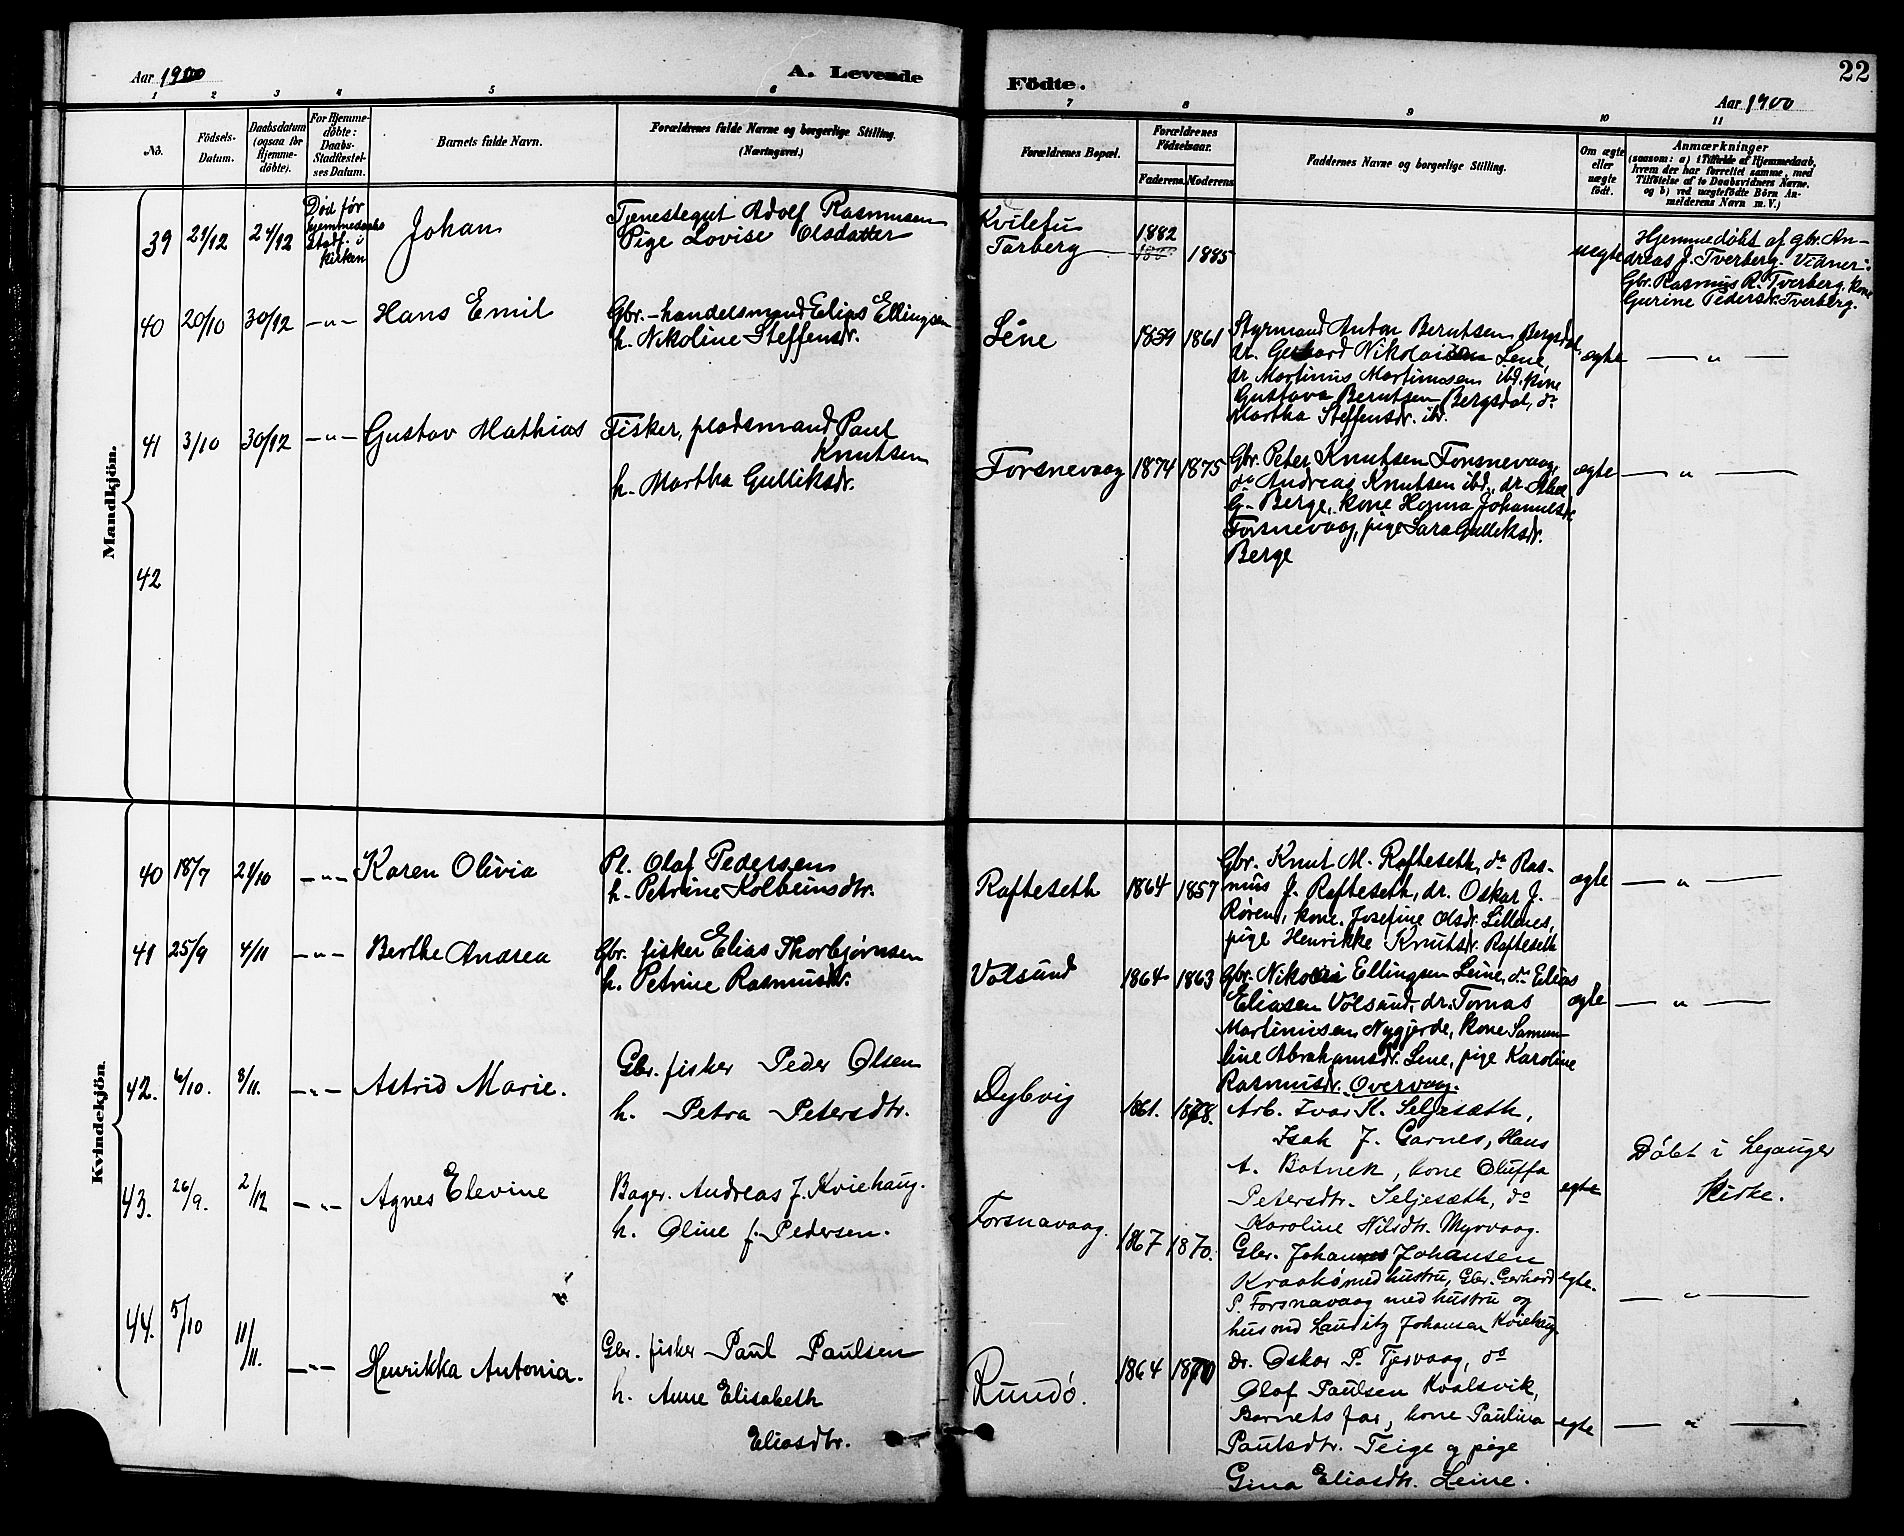 Aar 1900
A. Levende
Födte.
22
Aar 1900
1 2 3 4 5 6 7 8 9 10 11
No.
Födsels-
Datum.
Daabsdatum
(ogsaa for
Hjemme-
döbte).
For Hjemme-
döbte:
Daabs-
Stadfæstel-
ses Datum.
Barnets fulde Navn.
Forældrenes fulde Navne og borgerlige Stilling.
(Næringsvei.)
Forældrenes Bopæl.
Forældrenes
Födselsaar.
Faderens.
Moderens.
Faddernes Navne og borgerlige Stilling.
Om ægte
eller
uægte
födt.
Anmærkninger
(saasom: a) i Tilfælde af Hjemmedaab,
hvem der har forrettet samme, med
Tilföielse af to Daabsvidners Navne,
og b) ved uægtefödte Börn An-
melderens Navn m. V.)
Mandkjön.
39
21/12
24/12
Död før
hjemmedaabs
stadf. i
kirken
Johan
Tjenestegut Adolf Rasmusen
Pige Lovise Olsdatter
Kvilefu
Tarberg
1882
1885
uegte
Hjemmedöbt af gbr. An-
dreas J. Tverberg. Vidner:
Gbr. Rasmus R. Tverberg, kone
Gurine Pedersdr. Tverberg.
40
20/10
30/12
- " -
Hans Emil
Gbr.-handelsmand Elias Ellingsen
h. Nikoline Steffensdr.
Lene
1859
1861
Styrmand Anton Berntsen Bergsdal,
dr. Gerhard Nikolaisen Lene,
dr. Martinus Martinussen ibd. kone
Gustava Berntsen Bergsdal, do
Martha Steffensdr. ibd.
ægte
— " —
41
3/10
30/12
- " -
Gustav Mathias
Fisker, pladsmand Paul
Knutsen
h. Martha Gulliksdr.
Forsnevaag
1874
1875
Gbr. Peter Knutsen Forsnevaag,
do Andreas Knutsen ibd., dr. Abel
G. Berge, kone Hanna Johannesdr.
Forsnevaag, pige Sara Gulliksdr.
Berge
ægte
— " —
42
Kvindekjön.
40
18/7
21/10
- " -
Karen Olivia
Pl. Olaf Pedersen
h. Petrine Kolbeinsdtr.
Rafteseth
1864
1857
Gbr. Knut M. Rafteseth, do Ras-
mus J. Rafteseth, dr. Oskar J.
Røren, kone Josefine Olsdr. Lillenes,
pige Henrikke Knutsdr. Rafteseth
ægte
— " —
41
25/9
4/11
- " -
Berthe Andrea
Gbr. fisker Elias Thorbjørnsen
h. Petrine Rasmusdr.
Volsund
1864
1863
Gbr. Nikolai Ellingsen Leine, do Elias
Eliasen Volsund, dr. Tomas
Martinusen Nygjerde, kone Samue-
line Abrahamsdr. Lene, pige Karoline
Rasmusdr. Overvaag.
ægte
— " —
42.
6/10.
8/11.
- " -
Astrid Marie.
Gbr. fisker Peder Olsen
h. Petra Petersdtr.
Dybvig
1861.
1868.
Arb. Ivar K. Seljesæth,
Isak J. Garnes, Hans
A. Botnen, kone Oluffa
Petersdtr. Seljesæth, do
Karoline Nilsdtr. Myrvaag.
egte
Döbt i Leganger
Kirke.
43.
26/9.
2/12
- " -
Agnes Elevine
Bager. Andreas J. Kviehaug.
h. Oline f. Pedersen.
Forsnavaag.
1867
1870.
Gbr. Johannes Johansen
Kraakö med hustru, Gbr. Gerhard
P. Forsnavaag med hustru og
husmd Lauritz Johansen Kviehaug.
egte.
— " —
44.
5/10
11/11.
- " -
Henrikka Antonia.
Gbr. fisker Paul Paulsen
h. Anne Elisabeth
Eliasdtr.
Rundö.
1864
1870
dr. Oskar P. Tjervaag, do
Olaf Paulsen Kvalsvik,
Barnets far, kone Paulina
Paulsdtr. Teige og pige
Gina Eliasdtr. Leine.
egte
— " —